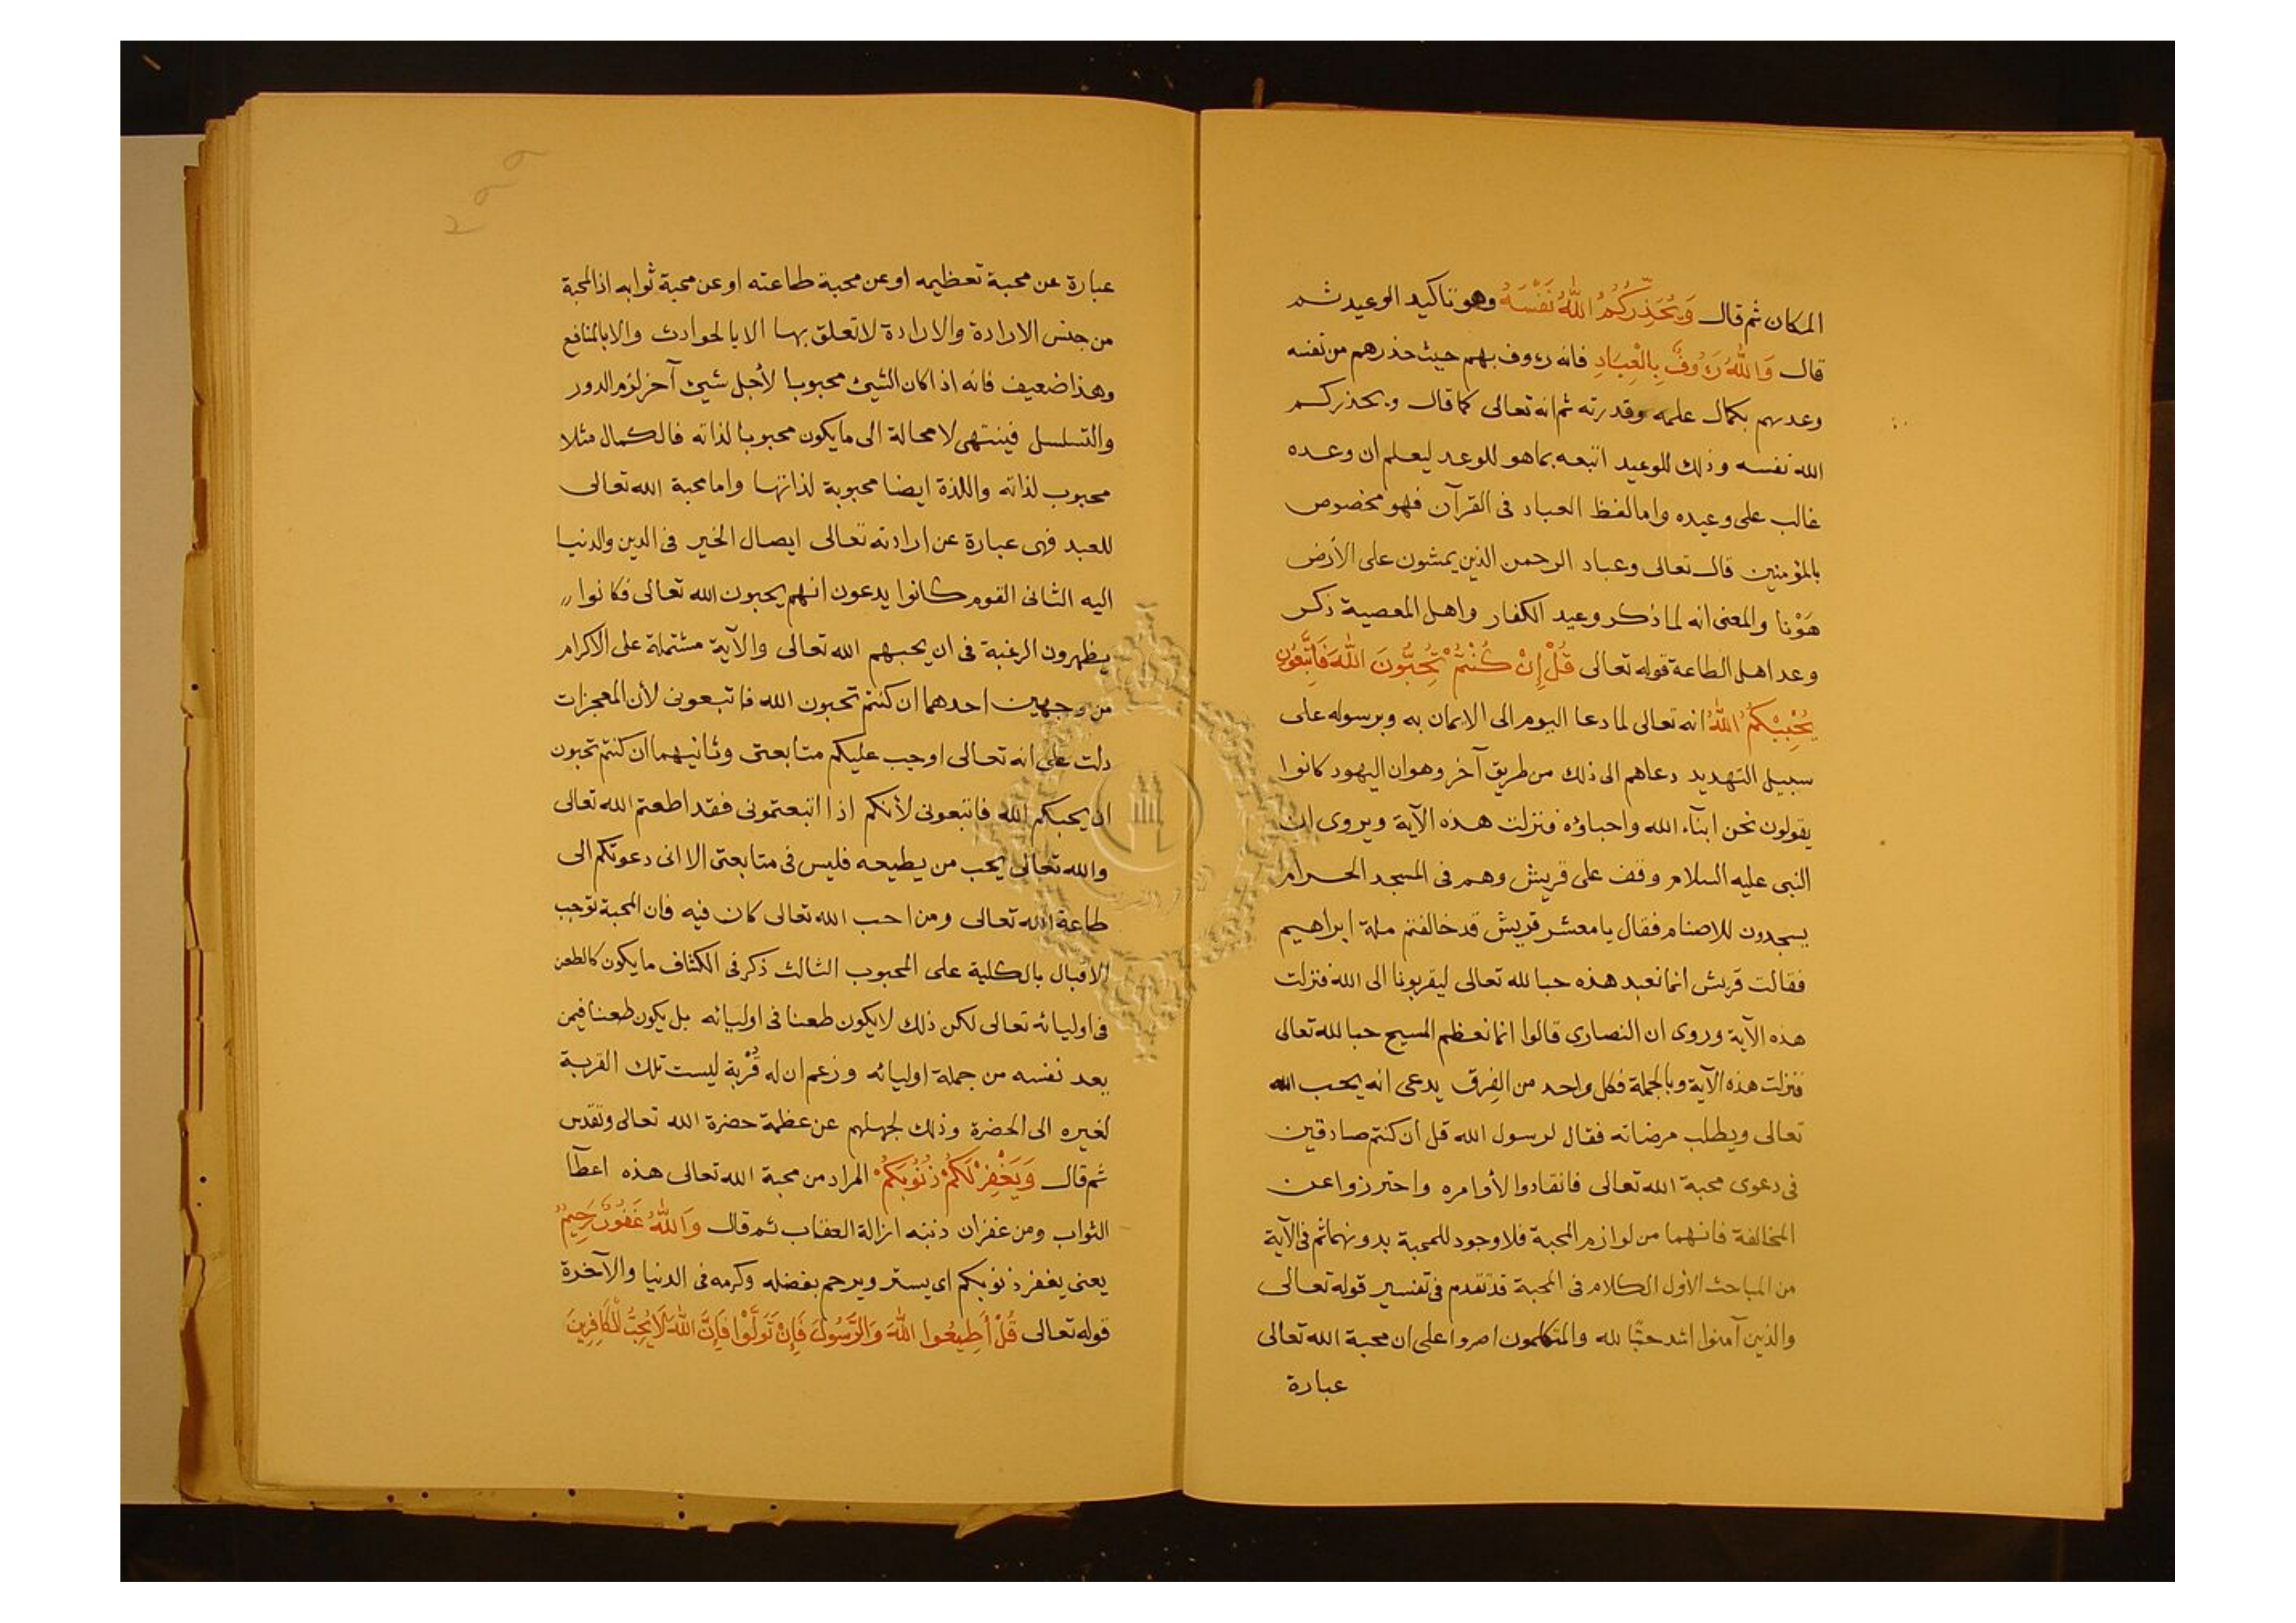 المكان ثم قال وَيُحَذِّرُكُمُ اللَّهُ نَفْسَهُ وهو تاكيد الوعيد ثم
قال وَاللَّهُ رَءُوفٌ بِالْعِبَادِ فانه رءوف بهم حيث حذرهم من نفسه
وعدهم بكمال علمه وقدرته ثم انه تعالى كما قال ويحذركم
الله نفسه وذلك للوعيد اتبعه بما هو للوعد ليعلم ان وعده
غالب على وعيده واما لفظ العباد فى القرآن فهو مخصوص
بالمؤمنين قال تعالى وعباد الرحمن الذين يمشون على الأرض
هَوْنا والمعنى انه لما ذكر وعيد الكفار واهل المعصية ذكر
وعد اهل الطاعة قوله تعالى قُلْ إِنْ كُنْتُمْ تُحِبُّونَ اللَّهَ فَاتَّبِعُونِى
يُحْبِبْكُمُ اللَّهُ انه تعالى لما دعا اليوم الى الايمان به وبرسوله على
سبيل التهديد دعاهم الى ذلك من طريق آخر وهو ان اليهود كانوا
يقولون نحن ابنآء الله واحباؤه فنزلت هذه الآية ويروى ان
النبى عليه السلام وقف على قريش وهم فى المسجد الحرام
يسجدون للاصنام فقال يا معشر قريش قد خالفتم ملة ابراهيم
فقالت قريش انما نعبد هذه حبا لله تعالى ليقربونا الى الله فنزلت
هذه الآية وروى ان النصارى قالوا انما نعظم المسيح حبا لله تعالى
فنزلت هذه الآية وبالجملة فكل واحد من الفِرق يدعى انه يحب الله
تعالى ويطلب مرضاته فقال لرسول الله قل ان كنتم صادقين
فى دعوى محبة الله تعالى فانقادوا لأوامره واحترزوا عن
المخالفة فانهما من لوازم المحبة فلا وجود للمحبة بدونهما ثم فى الآية
من المباحث الأول الكلام فى المحبة قد تقدم فى تفسير قوله تعالى
والذين آمنوا اشد حبًا لله والمتكلمون اصروا على ان محبة الله تعالى
عبارة
٢٩٩
عبارة عن محبة تعظيمه او عن محبة طاعته او عن محبة ثوابه اذ المحبة
من جنس الارادة والارادة لا تعلق بها الا بالحوادث والا بالمنافع
وهذا ضعيف فانه اذا كان الشيئ محبوبا لأجل شيئ آخر لزم الدور
والتسلسل فينتهى لا محالة الى ما يكون محبوبا لذاته فالكمال مثلا
محبوب لذاته واللذة ايضا محبوبة لذاتها واما محبة الله تعالى
للعبد فهى عبارة عن ارادته تعالى ايصال الخير فى الدين والدنيا
اليه الثانى القوم كانوا يدعون انهم يحبون الله تعالى فكانوا
يظهرون الرغبة فى ان يحبهم الله تعالى والآية مشتملة على الاكرام
من وجهين احدهما ان كنتم تحبون الله فاتبعونى لأن المعجزات
دلت على انه تعالى اوجب عليكم متابعتى وثانيهما ان كنتم تحبون
ان يحبكم الله فاتبعونى لأنكم اذا اتبعتمونى فقد اطعتم الله تعالى
والله تعالى يحب من يطيعه فليس فى متابعتى الا انى دعوتكم الى
طاعة الله تعالى ومن احب الله تعالى كان فيه فان المحبة توجب
الاقبال بالكلية على المحبوب الثالث ذكر فى الكشاف ما يكون كالطعن
فى اوليائه تعالى لكن ذلك لا يكون طعنا فى اوليائه بل يكون طعنا فيمن
يعد نفسه من جملة اوليائه وزعم ان له قُرْبة ليست تلك القربة
لغيره الى الحضرة وذلك لجهلهم عن عظمة حضرة الله تعالى وتقدس
ثم قال وَيَغْفِرْ لَكُمْ ذُنُوبَكُمْ المراد من محبة الله تعالى هذه اعطآ
الثواب ومن غفران ذنبه ازالة العقاب ثم قال وَاللَّهُ غَفُورٌ رَحِيمٌ
يعنى يغفر ذنوبكم اى يستر ويرحم بفضله وكرمه فى الدنيا والآخرة
قوله تعالى قُلْ أَطِيعُوا اللَّهَ وَالرَّسُولَ فَإِنْ تَوَلَّوْا فَإِنَّ اللَّهَ لَا يُحِبُّ الْكَافِرِينَ